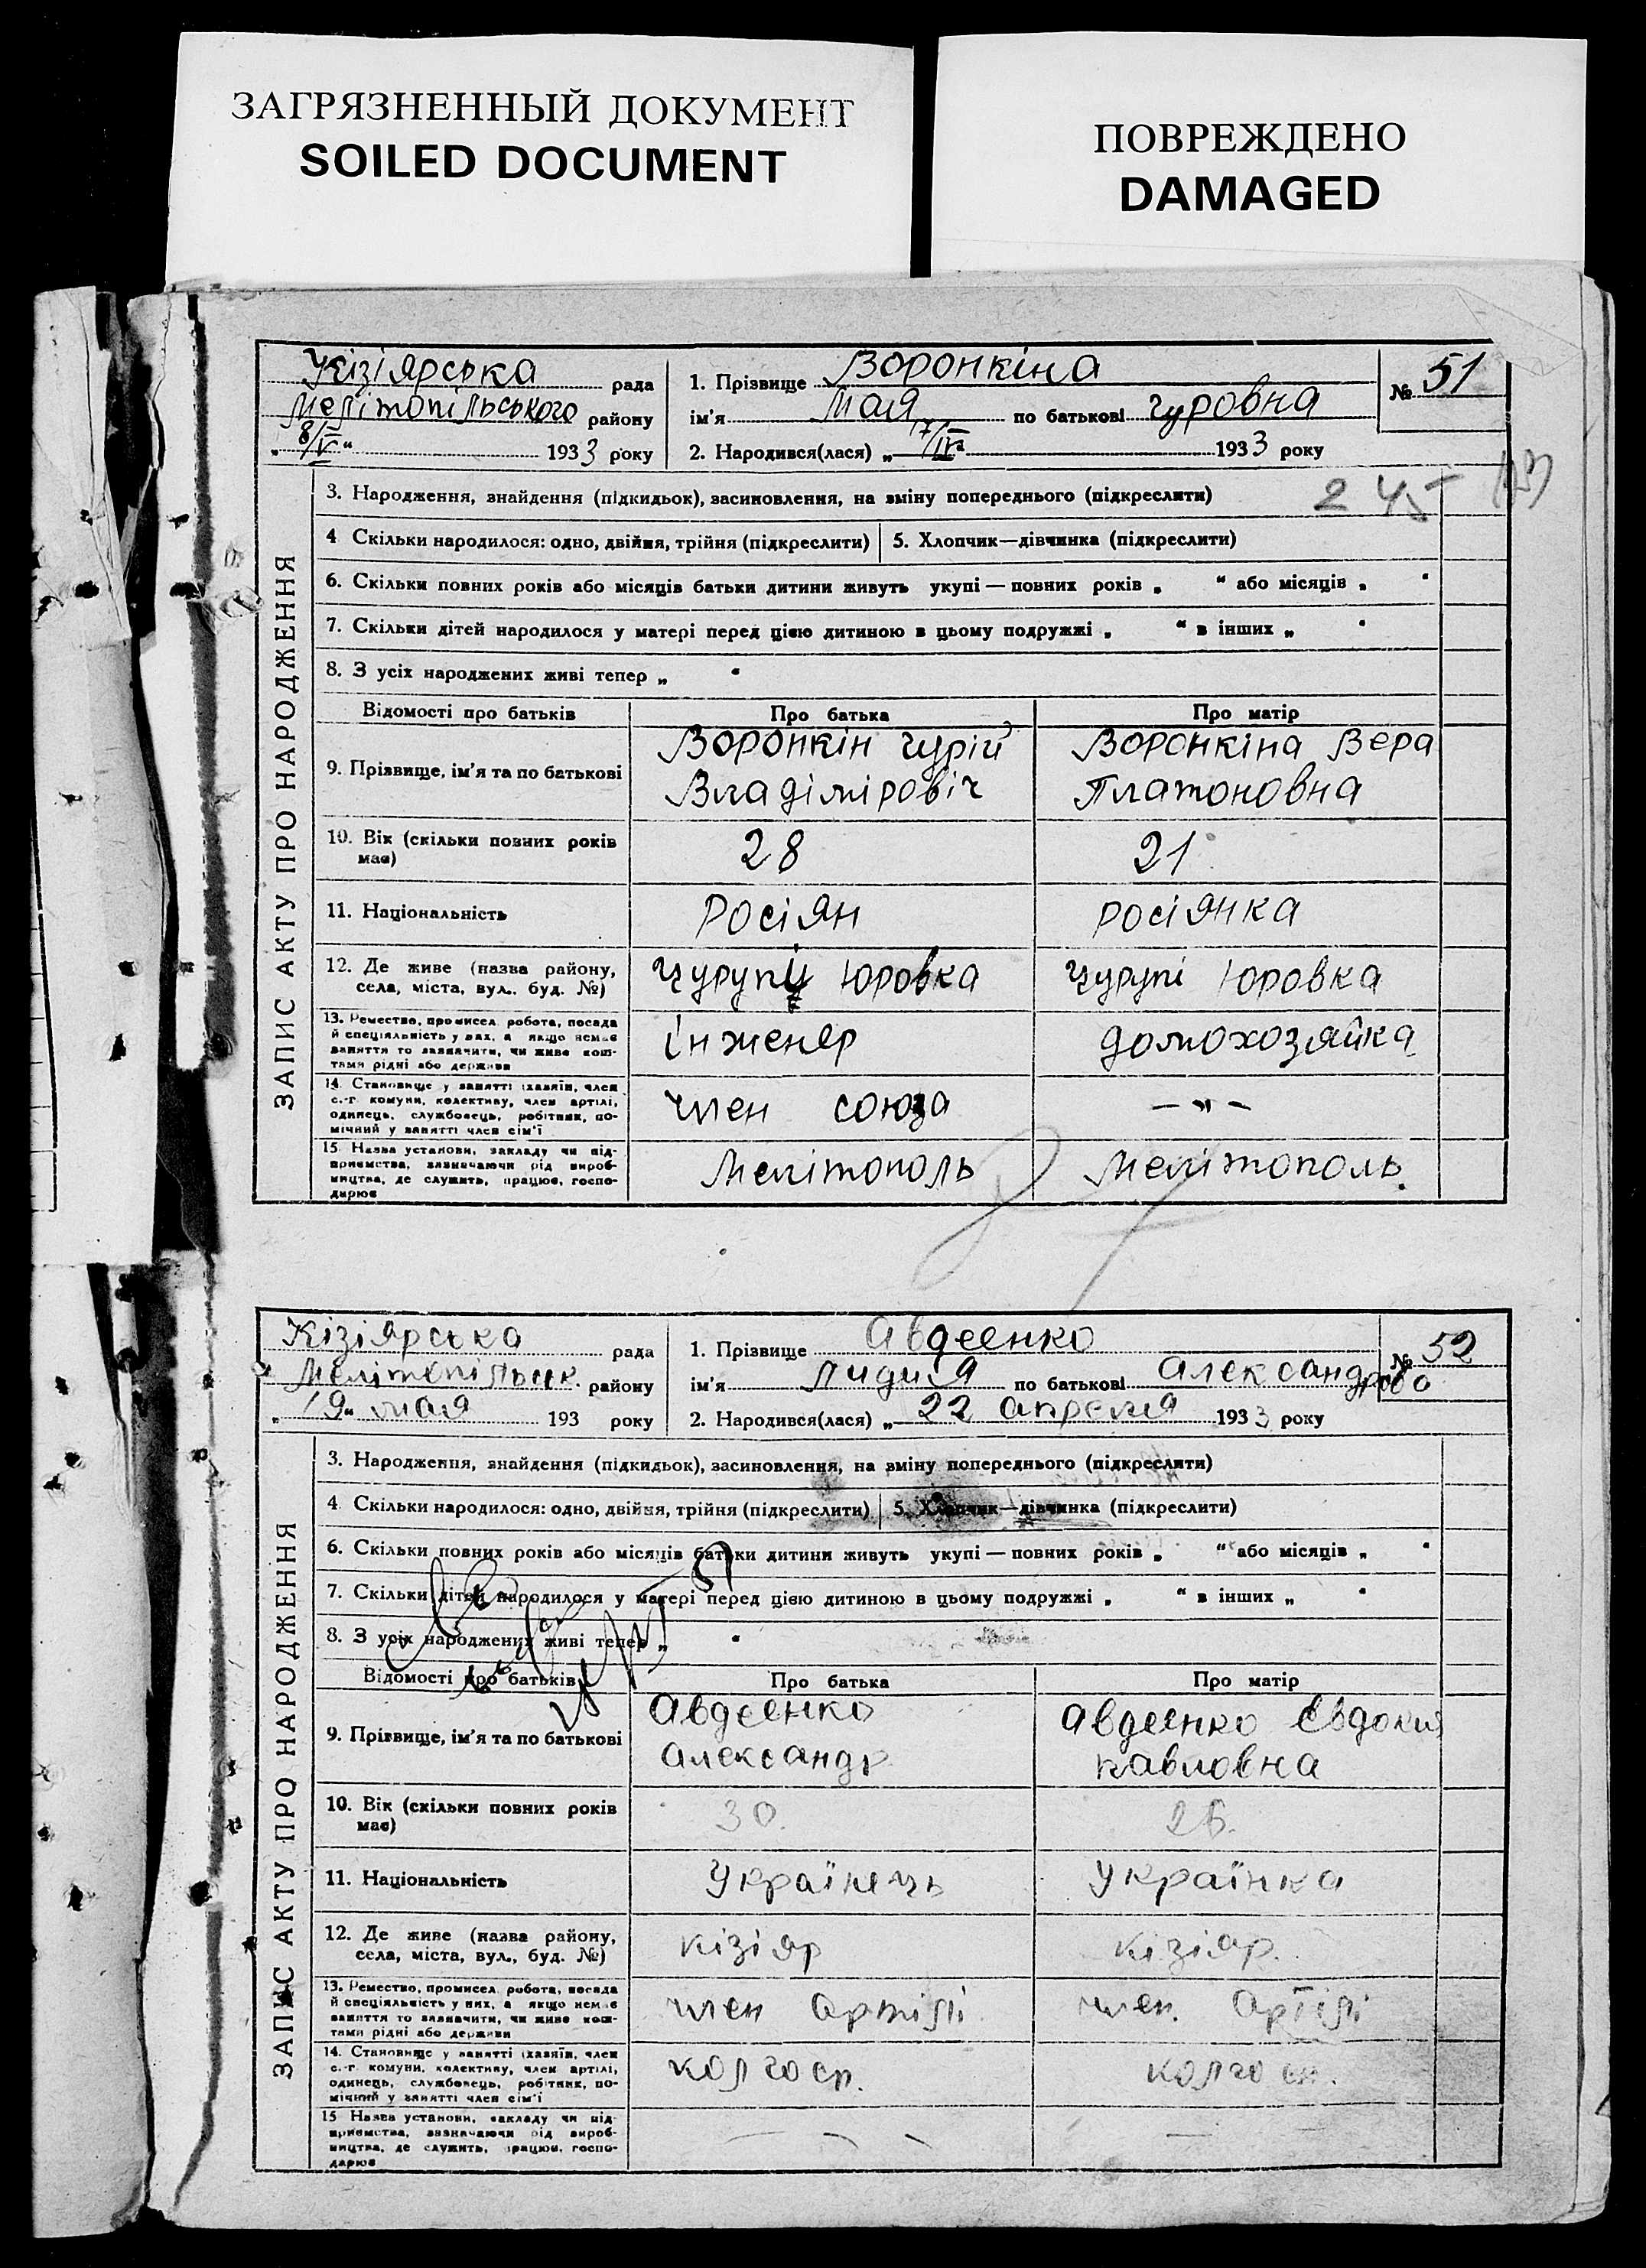 ЗАГРЯЗНЕННЫЙ ДОКУМЕНТ
SOILED DOCUMENT
ПОВРЕЖДЕНО
DAMAGED
Кізіярська рада
Мелітопільського району
„8/IV“ 1933 року
1. Прізвище Воронкіна
ім'я Мая по батькові Гуровна
2. Народився(лася) „17/IV“ 1933 року
№ 51
ЗАПИС АКТУ ПРО НАРОДЖЕННЯ
3. Народження, знайдення (підкидьок), засиновлення, на зміну попереднього (підкреслити)
245
4 Скільки народилося: одно, двійня, трійня (підкреслити) 5. Хлопчик—дівчинка (підкреслити)
6. Скільки повних років або місяців батьки дитини живуть укупі — повних років „ “ або місяців „ “
7. Скільки дітей народилося у матері перед цією дитиною в цьому подружжі „ “ в інших „ “
8. З усіх народжених живі тепер „ “
Відомості про батьків Про батька Про матір
9. Прізвище, ім'я та по батькові
Воронкін Гурій
Владіміровіч
Воронкіна Вера
Платоновна
10. Вік (скільки повних років
має)
28
21
11. Національність
Росіян
росіянка
12. Де живе (назва району,
села, міста, вул. буд. №)
Юровка
Юровка
13. Ремество, промисел, робота, посада
й спеціяльність у них, а якщо немає
заняття то зазначити, чи живе кош-
тами рідні або держави
інженер
домохозяйка
14. Становище у занятті (хазяїн, член
с.-г. комуни, колективу, член артілі,
одинець, службовець, робітник, по-
мічний у занятті член сім'ї
член союза
—„—
15 Назва установи, закладу чи під-
приємства, зазначаючи рід вироб-
ництва, де служить, працює, госпо-
дарює
Мелітополь
Мелітополь.
Кізіярська рада
Мелітопільськ. району
„19“ мая 193 року
1. Прізвище Авдеенко
ім'я Лидия по батькові Александрово
2. Народився(лася) „22 апреля 1933 року
№ 52
ЗАПИС АКТУ ПРО НАРОДЖЕННЯ
3. Народження, знайдення (підкидьок), засиновлення, на зміну попереднього (підкреслити)
4 Скільки народилося: одно, двійня, трійня (підкреслити) 5. Хлопчик—дівчинка (підкреслити)
6. Скільки повних років або місяців батьки дитини живуть укупі — повних років „ “ або місяців „ “
7. Скільки дітей народилося у матері перед цією дитиною в цьому подружжі „ “ в інших „ “
8. З усіх народжених живі тепер „ “
Відомості про батьків Про батька Про матір
9. Прізвище, ім'я та по батькові
Авдеенко
Александр
Авдеенко Евдокия
Павловна
10. Вік (скільки повних років
має)
30.
26.
11. Національність
Українець
Українка
12. Де живе (назва району,
села, міста, вул., буд. №)
Кізіяр
Кізіяр.
13. Ремество, промисел, робота, посада
й спеціяльність у них, а якщо немає
заняття то зазначити, чи живе кош-
тами рідні або держави
член артілі
член. артілі
14. Становище у занятті (хазяїн, член
с.-г. комуни, колективу, член артілі,
одинець, службовець, робітник, по-
мічний у занятті член сім'ї
колгосп.
колгосп.
15 Назва установи, закладу чи під-
приємства, зазначаючи рід вироб-
ництва, де служить, працює, госпо-
дарює